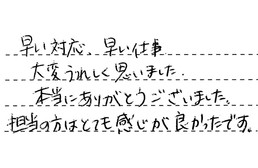 早い対応、早い仕事
大変うれしく思いました.
本当にありがとうございました。
担当の方はとても感じが良かったです。